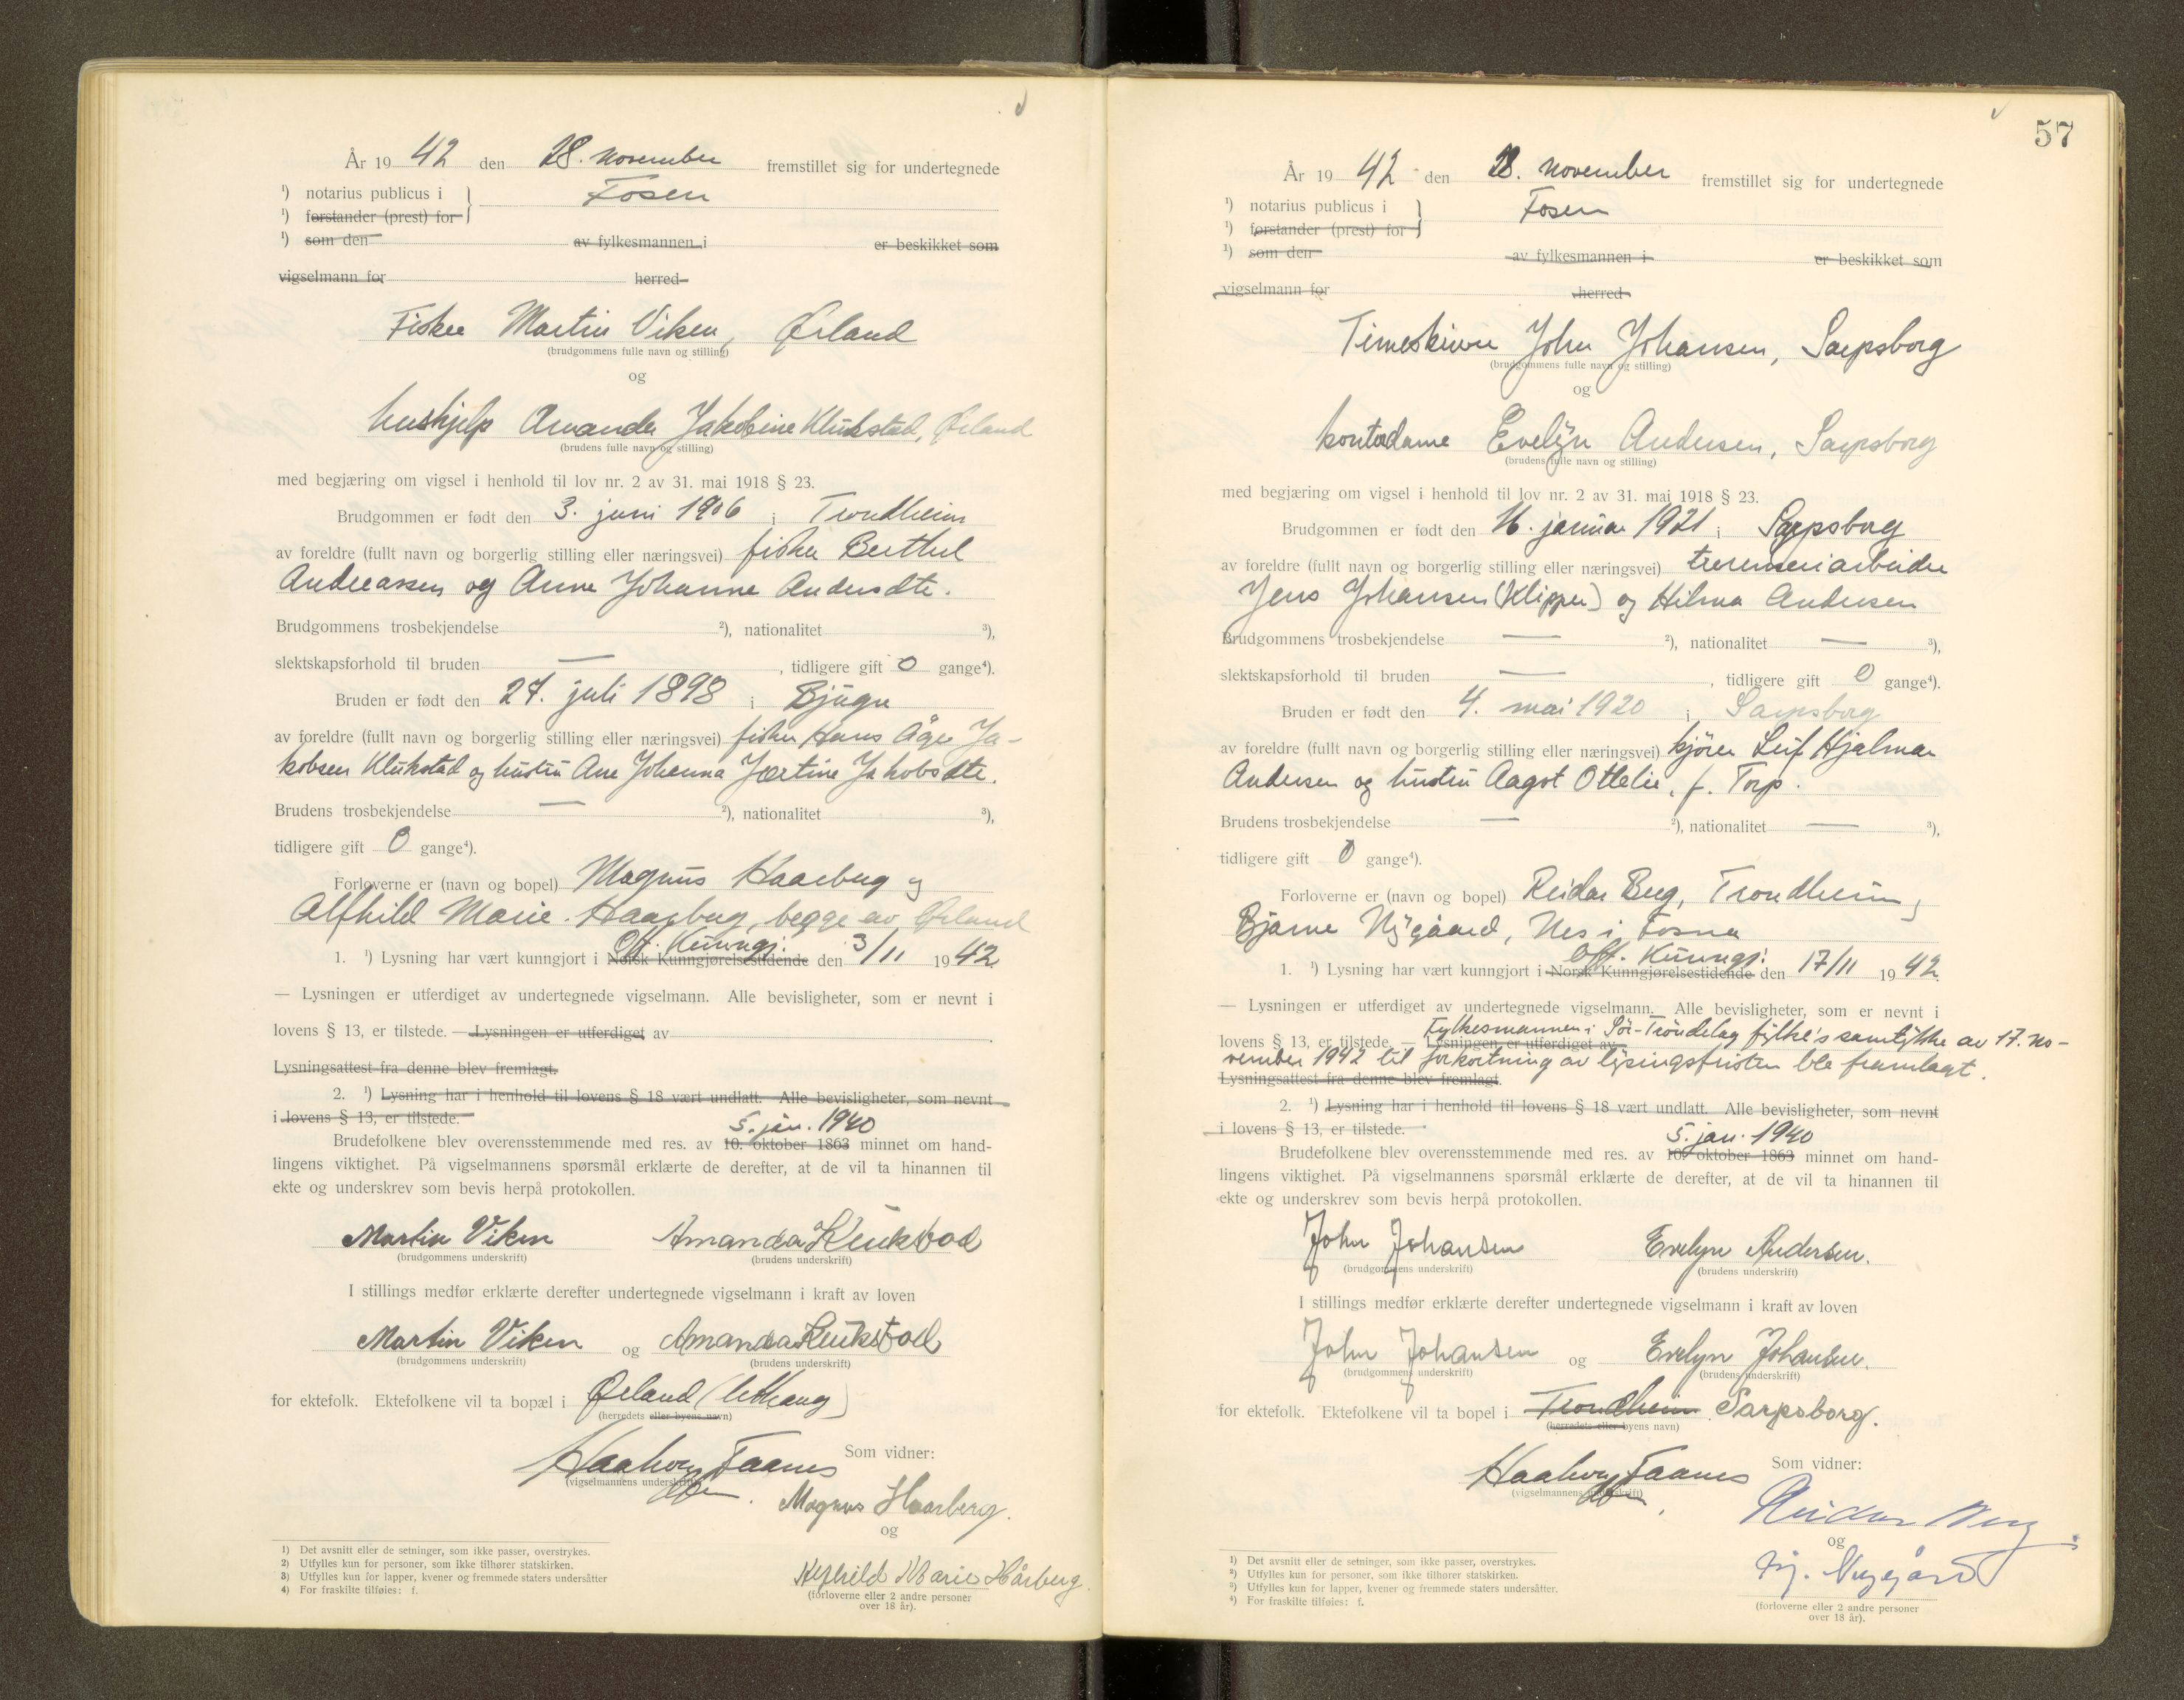 År 19 42 den 28. november fremstillet sig for undertegnede
¹) notarius publicus i Fosen
¹) forstander (prest) for
¹) som den av fylkesmannen i er beskikket som
vigselmann for herred
Fisker Martin Viken, Ørland
(brudgommens fulle navn og stilling)
og
hushjelp Amanda Jakobine Klukstad, Ørland
(brudens fulle navn og stilling)
med begjæring om vigsel i henhold til lov nr. 2 av 31. mai 1918 § 23.
Brudgommen er født den 3. juni 1906 i Trondheim
av foreldre (fullt navn og borgerlig stilling eller næringsvei) fisker Berthel
Andreassen og Anne Johanne Andersdtr.
Brudgommens trosbekjendelse ²), nationalitet ³),
slektskapsforhold til bruden — , tidligere gift 0 gange⁴).
Bruden er født den 27. juli 1898 i Bjugn
av foreldre (fullt navn og borgerlig stilling eller næringsvei) fisker Hans Åge Ja-
kobsen Klukstad og hustru Ane Johanna Jærtine Jakobsdtr.
Brudens trosbekjendelse — ²), nationalitet ³),
tidligere gift 0 gange⁴).
Forloverne er (navn og bopel) Magnus Haarberg og
Alfhild Marie Haarberg, begge av Ørland
Off. Kunngj.
1. ¹) Lysning har vært kunngjort i Norsk Kunngjørelsestidende den 3/11 1942
— Lysningen er utferdiget av undertegnede vigselmann. Alle bevisligheter, som er nevnt i
lovens § 13, er tilstede. — Lysningen er utferdiget av .
Lysningsattest fra denne blev fremlagt.
2. ¹) Lysning har i henhold til lovens § 18 vært undlatt. Alle bevisligheter, som nevnt
i lovens § 13, er tilstede.
5. jan. 1940
Brudefolkene blev overensstemmende med res. av 10. oktober 1863 minnet om hand-
lingens viktighet. På vigselmannens spørsmål erklærte de derefter, at de vil ta hinannen til
ekte og underskrev som bevis herpå protokollen.
Martin Viken Amanda Klukstad
(brudgommens underskrift) (brudens underskrift)
I stillings medfør erklærte derefter undertegnede vigselmann i kraft av loven
Martin Viken og Amanda Klukstad
(brudgommens underskrift) (brudens underskrift)
for ektefolk. Ektefolkene vil ta bopæl i Ørland (Uthaug)
(herredets eller byens navn)
Haakon Faanes Som vidner:
(vigselmannens underskrift)
Magnus Haarberg.
og
Marie Hårberg.
(forloverne eller 2 andre personer
over 18 år).
1) Det avsnitt eller de setninger, som ikke passer, overstrykes.
2) Utfylles kun for personer, som ikke tilhører statskirken.
3) Utfylles kun for lapper, kvener og fremmede staters undersåtter
4) For fraskilte tilføies: f.
57
År 19 42 den 28. november fremstillet sig for undertegnede
¹) notarius publicus i Fosen
¹) forstander (prest) for
¹) som den av fylkesmannen i er beskikket som
vigselmann for herred
Timeskriver John Johansen, Sarpsborg
(brudgommens fulle navn og stilling)
og
kontordame Evelyn Andersen, Sarpsborg
(brudens fulle navn og stilling)
med begjæring om vigsel i henhold til lov nr. 2 av 31. mai 1918 § 23.
Brudgommen er født den 16. januar 1921 i Sarpsborg
av foreldre (fullt navn og borgerlig stilling eller næringsvei) treresleriarbeider
Jens Johansen (Klipper) og Hilma Andersen
Brudgommens trosbekjendelse — ²), nationalitet — ³),
slektskapsforhold til bruden — , tidligere gift 0 gange⁴).
Bruden er født den 4. mai 1920 i Sarpsborg
av foreldre (fullt navn og borgerlig stilling eller næringsvei) kjører Leif Hjalmar
Andersen og hustru Aagot Ottelie, f. Torp.
Brudens trosbekjendelse — ²), nationalitet — ³),
tidligere gift 0 gange⁴).
Forloverne er (navn og bopel) Reidar Berg, Trondheim og
Bjarne Nygaard, Nes i Fosna
Off. Kunngj.
1. ¹) Lysning har vært kunngjort i Norsk Kunngjørelsestidende den 17/11 1942
— Lysningen er utferdiget av undertegnede vigselmann. Alle bevisligheter, som er nevnt i
Fylkesmannen i Sør-Trøndelag fylke's samtykke av 17. no-
lovens § 13, er tilstede. — Lysningen er utferdiget av
vember 1942 til forkortning av lysingsfristen ble framlagt.
Lysningsattest fra denne blev fremlagt.
2. ¹) Lysning har i henhold til lovens § 18 vært undlatt. Alle bevisligheter, som nevnt
i lovens § 13, er tilstede.
5. jan. 1940
Brudefolkene blev overensstemmende med res. av 10. oktober 1863 minnet om hand-
lingens viktighet. På vigselmannens spørsmål erklærte de derefter, at de vil ta hinannen til
ekte og underskrev som bevis herpå protokollen.
John Johansen Evelyn Andersen.
(brudgommens underskrift) (brudens underskrift)
I stillings medfør erklærte derefter undertegnede vigselmann i kraft av loven
John Johansen og Evelyn Johansen.
(brudgommens underskrift) (brudens underskrift)
for ektefolk. Ektefolkene vil ta bopel i Trondheim Sarpsborg.
(herredets eller byens navn)
Haakon Faanes Som vidner:
(vigselmannens underskrift)
Reidar Berg
og
Bj. Nygård
(forloverne eller 2 andre personer
over 18 år).
1) Det avsnitt eller de setninger, som ikke passer, overstrykes.
2) Utfylles kun for personer, som ikke tilhører statskirken.
3) Utfylles kun for lapper, kvener og fremmede staters undersåtter.
4) For fraskilte tilføies: f.